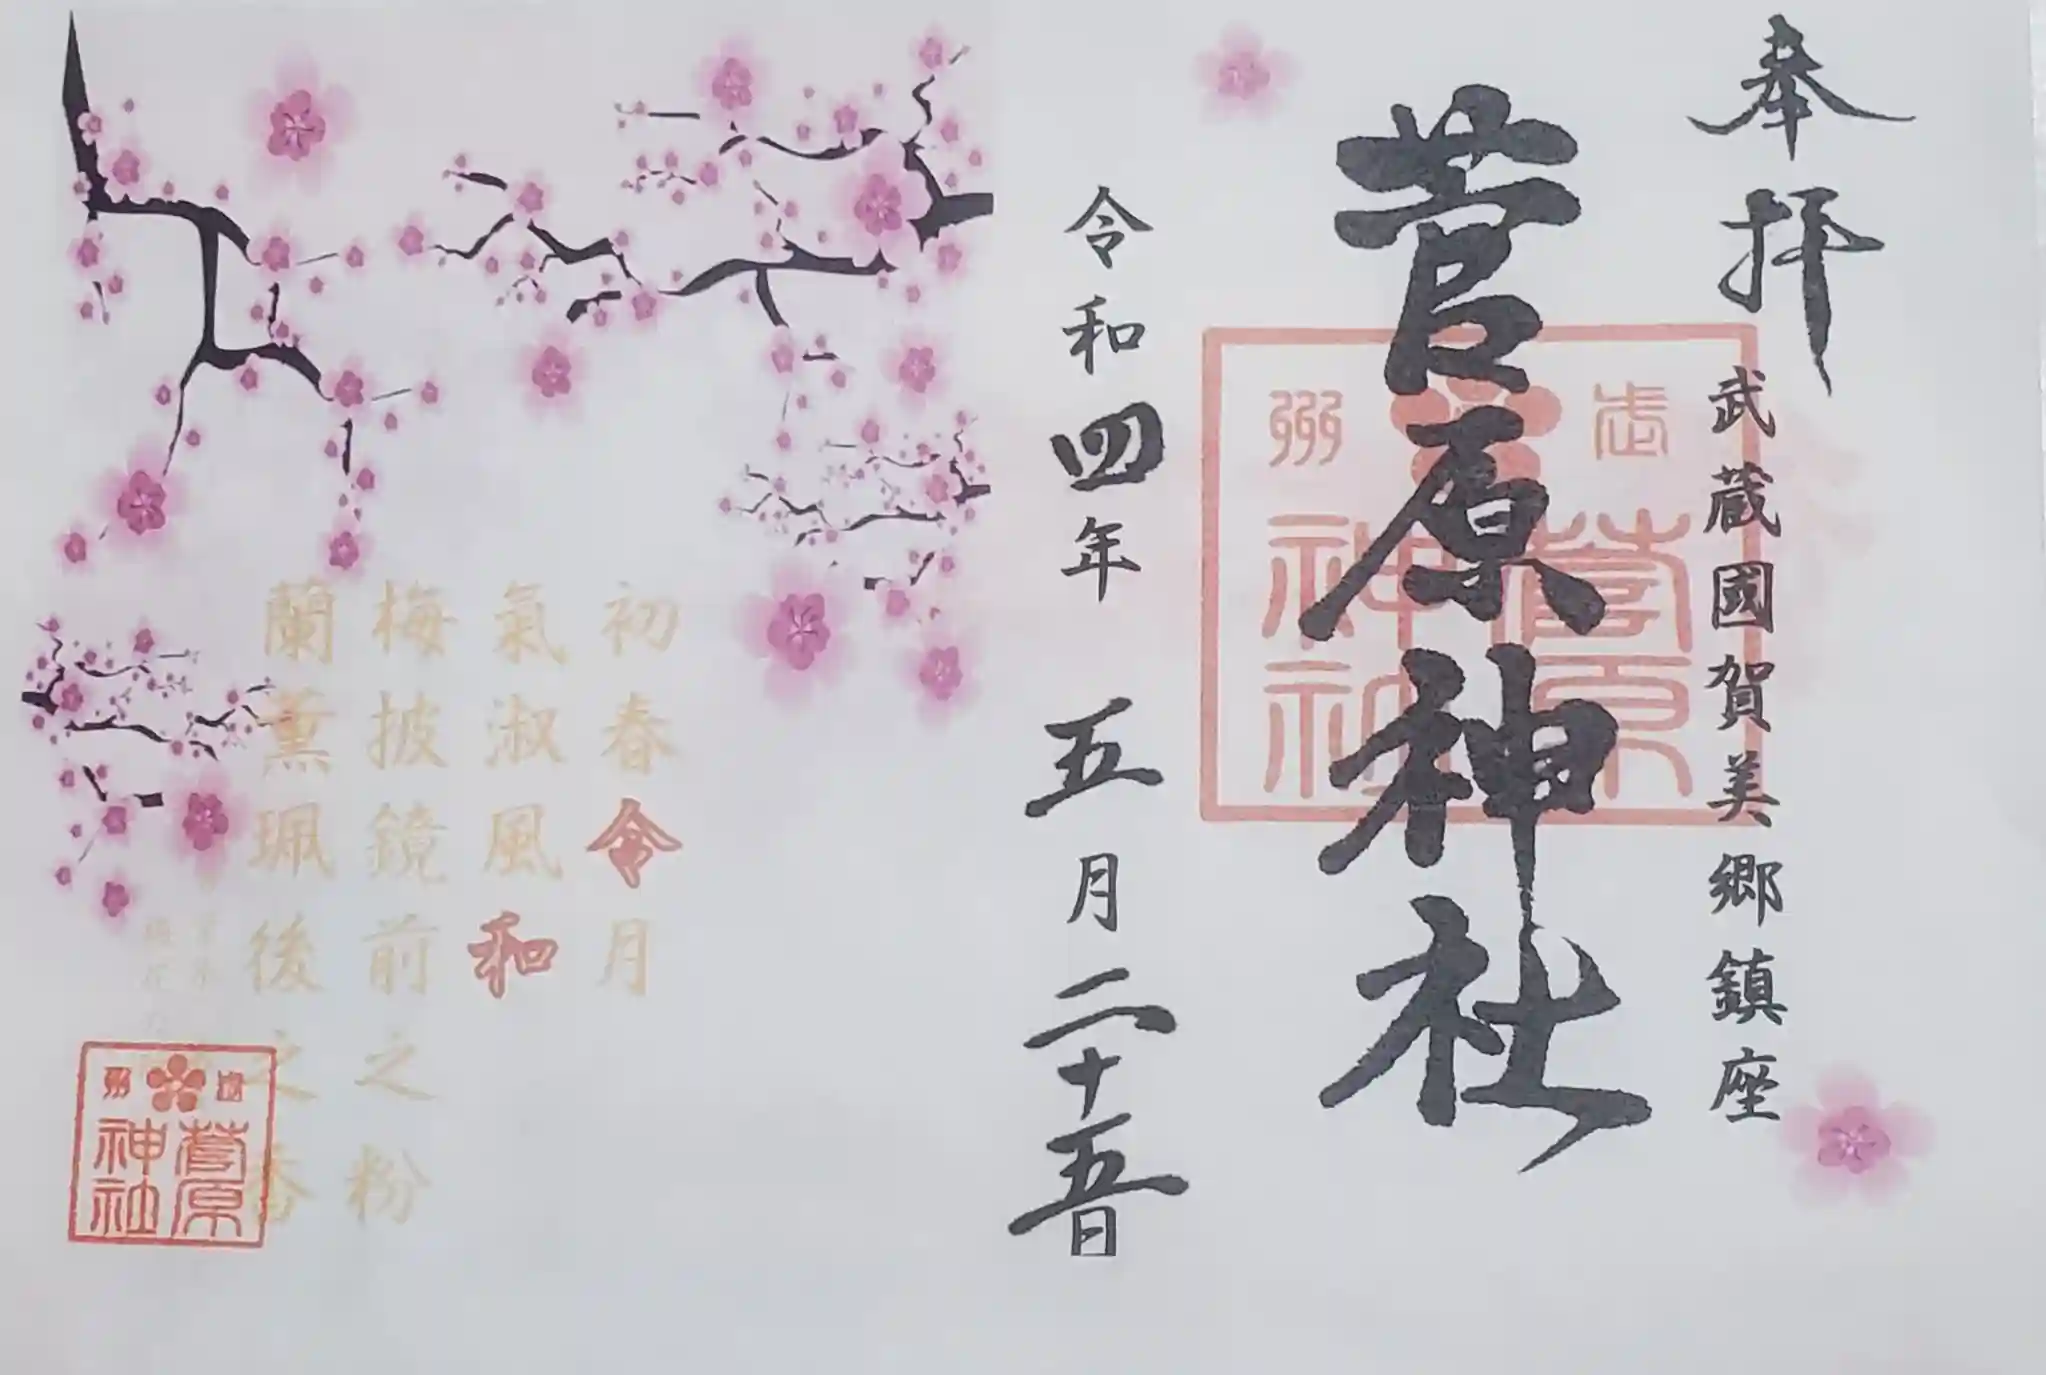 奉拝
武蔵國賀美郷鎮座
菅原神社
武州
菅原
神社
令和四年 五月二十五日
初春令月
氣淑風和
梅披鏡前之粉
蘭薫珮後之香
武州
菅原
神社